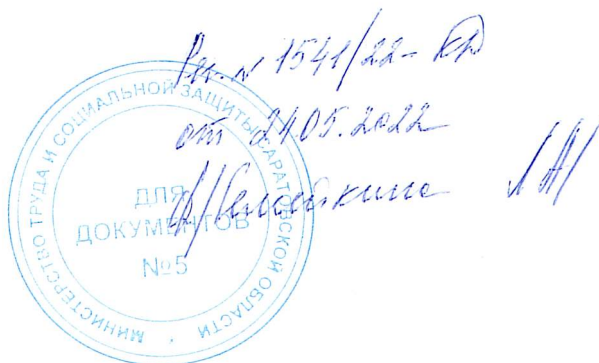 Рег. № 1541/22-КД
от 24.05.2022
МИНИСТЕРСТВО ТРУДА И СОЦИАЛЬНОЙ ЗАЩИТЫ САРАТОВСКОЙ ОБЛАСТИ
ДЛЯ
ДОКУМЕНТОВ
№5